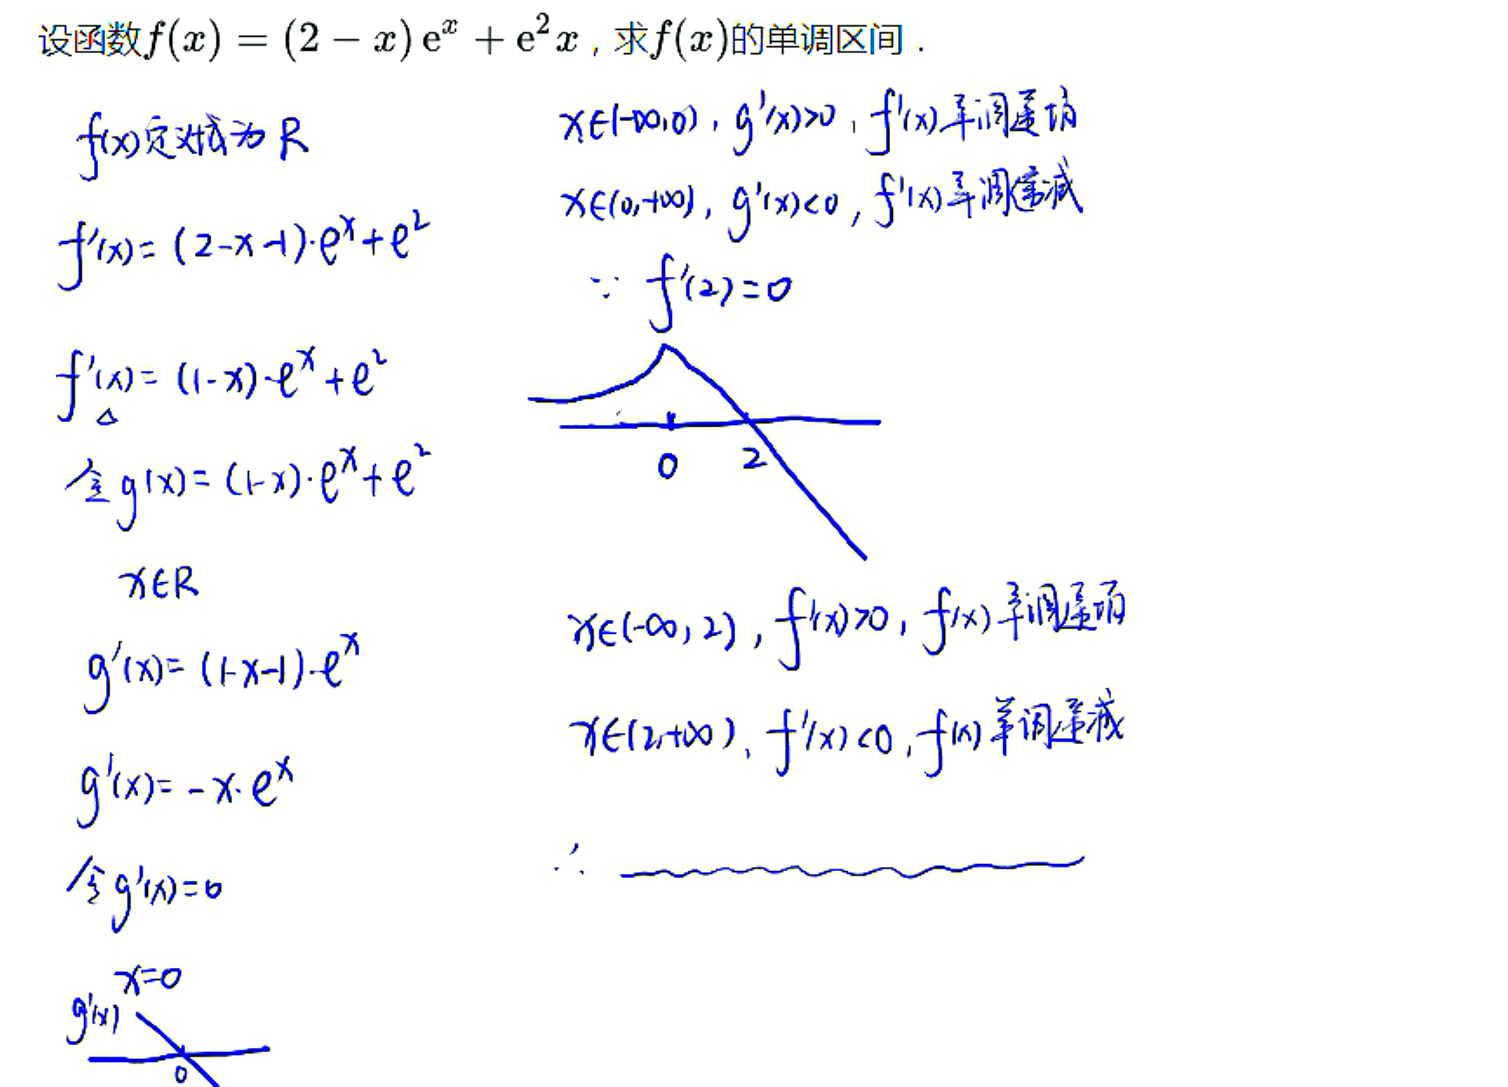 设函数f(x) = (2 − x) eˣ + e²x，求f(x)的单调区间．
f(x)定义域为R
f'(x)=(2-x-1)·eˣ+e²
f'(x)=(1-x)·eˣ+e²
令g(x)=(1-x)·eˣ+e²
x∈R
g'(x)=(1-x-1)·eˣ
g'(x)=-x·eˣ
令g'(x)=0
x=0
g'(x)
0
x∈(-∞,0)，g'(x)>0，f'(x)单调递增
x∈(0,+∞)，g'(x)<0，f'(x)单调递减
∵ f'(2)=0
0 2
x∈(-∞,2)，f'(x)>0，f(x)单调递增
x∈(2,+∞)、f'(x)<0，f(x)单调递减
∴